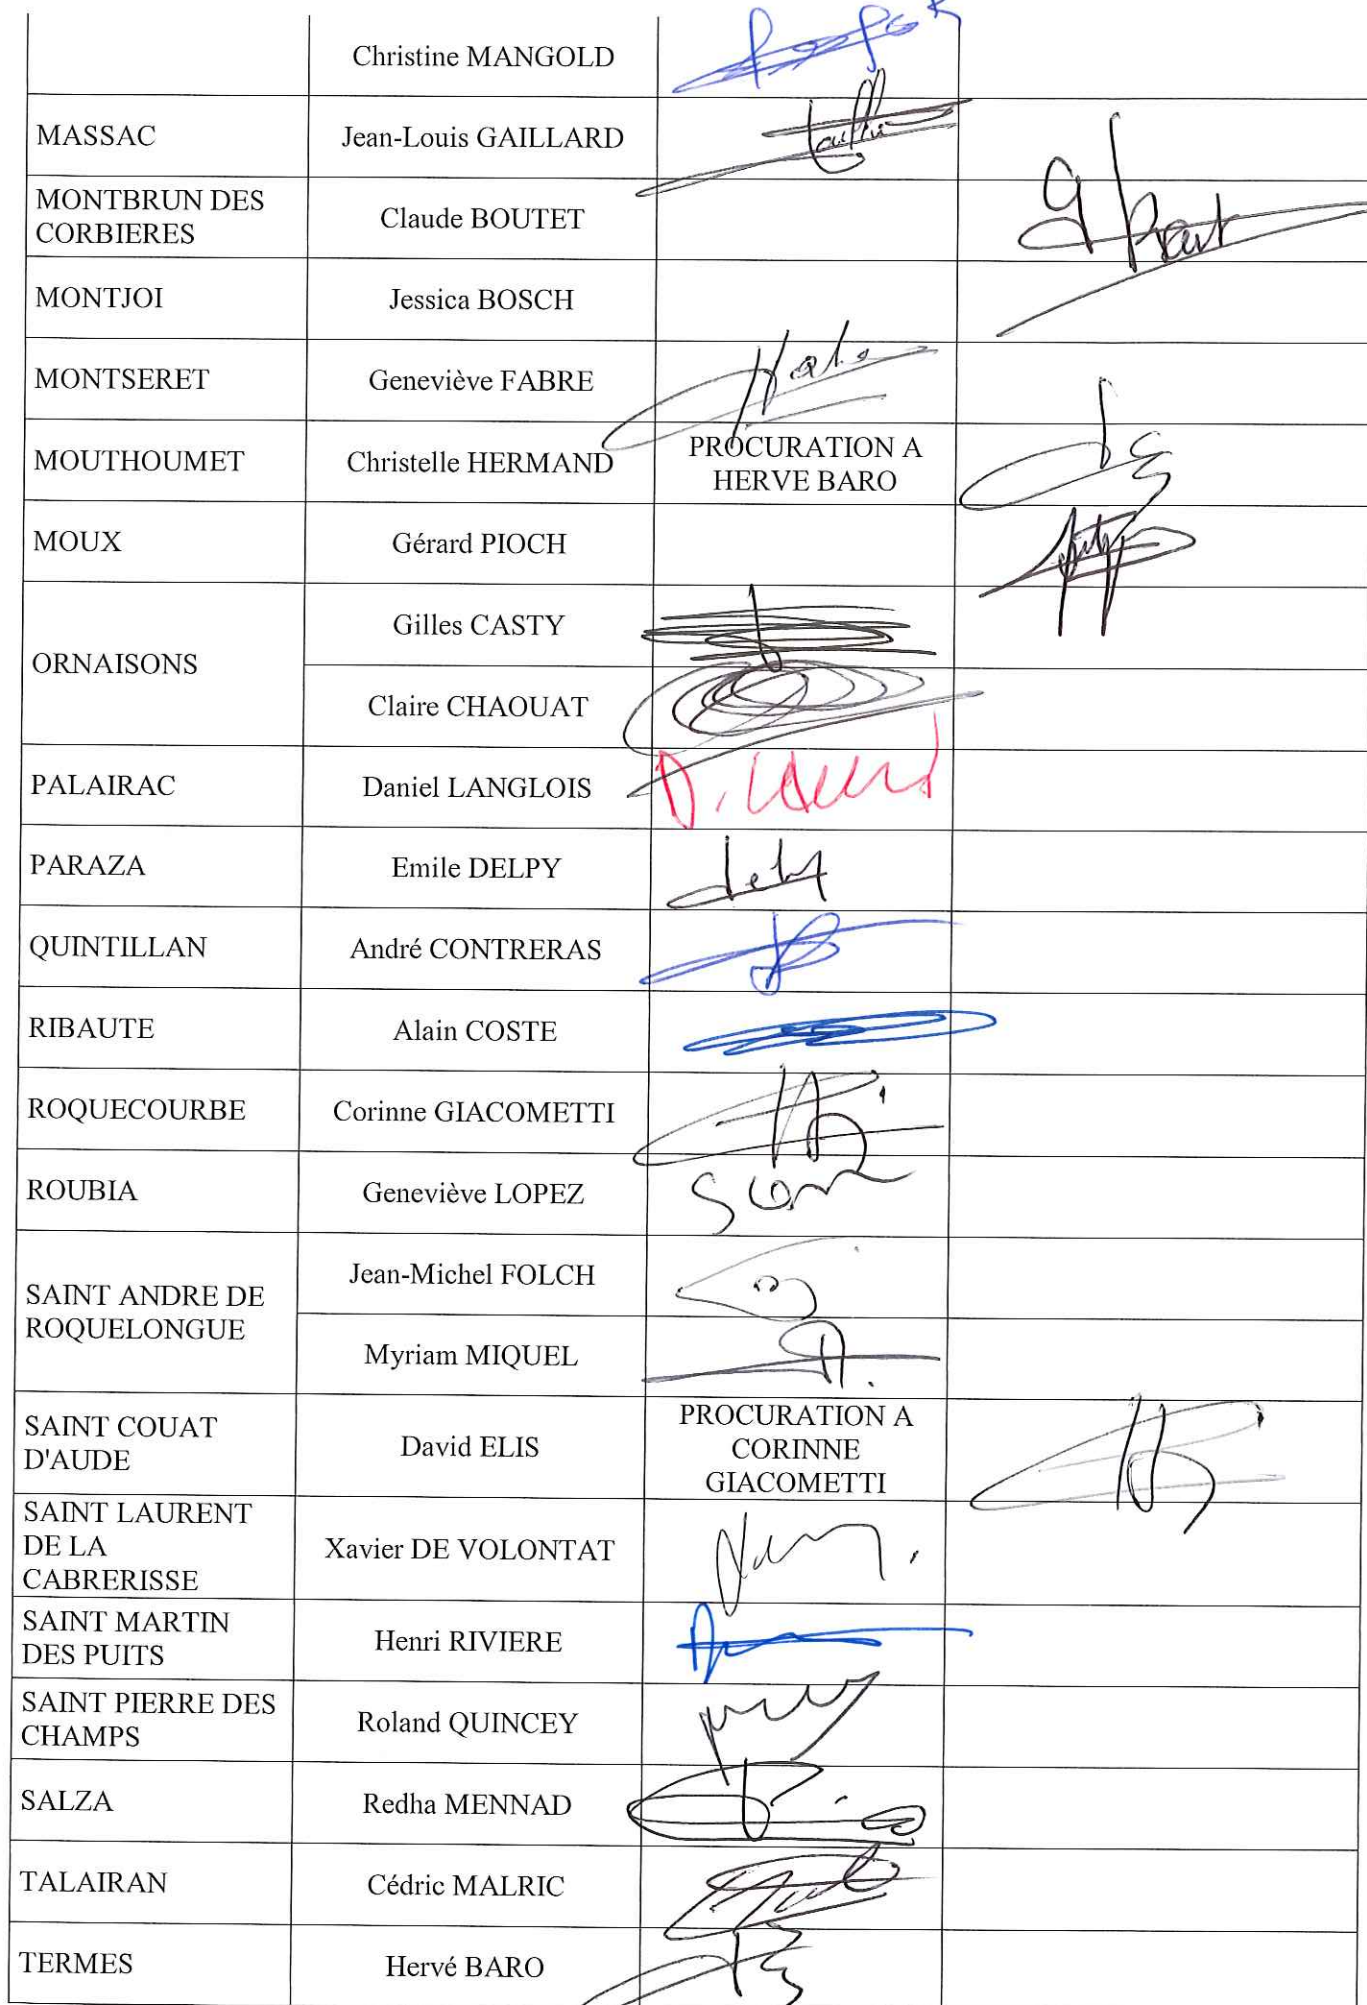 Christine MANGOLD
MASSAC
Jean-Louis GAILLARD
MONTBRUN DES
CORBIERES
Claude BOUTET
MONTJOI
Jessica BOSCH
MONTSERET
Geneviève FABRE
MOUTHOUMET
Christelle HERMAND
PROCURATION A
HERVE BARO
MOUX
Gérard PIOCH
ORNAISONS
Gilles CASTY
Claire CHAOUAT
PALAIRAC
Daniel LANGLOIS
PARAZA
Emile DELPY
QUINTILLAN
André CONTRERAS
RIBAUTE
Alain COSTE
ROQUECOURBE
Corinne GIACOMETTI
ROUBIA
Geneviève LOPEZ
SAINT ANDRE DE
ROQUELONGUE
Jean-Michel FOLCH
Myriam MIQUEL
SAINT COUAT
D'AUDE
David ELIS
PROCURATION A
CORINNE
GIACOMETTI
SAINT LAURENT
DE LA
CABRERISSE
Xavier DE VOLONTAT
SAINT MARTIN
DES PUITS
Henri RIVIERE
SAINT PIERRE DES
CHAMPS
Roland QUINCEY
SALZA
Redha MENNAD
TALAIRAN
Cédric MALRIC
TERMES
Hervé BARO